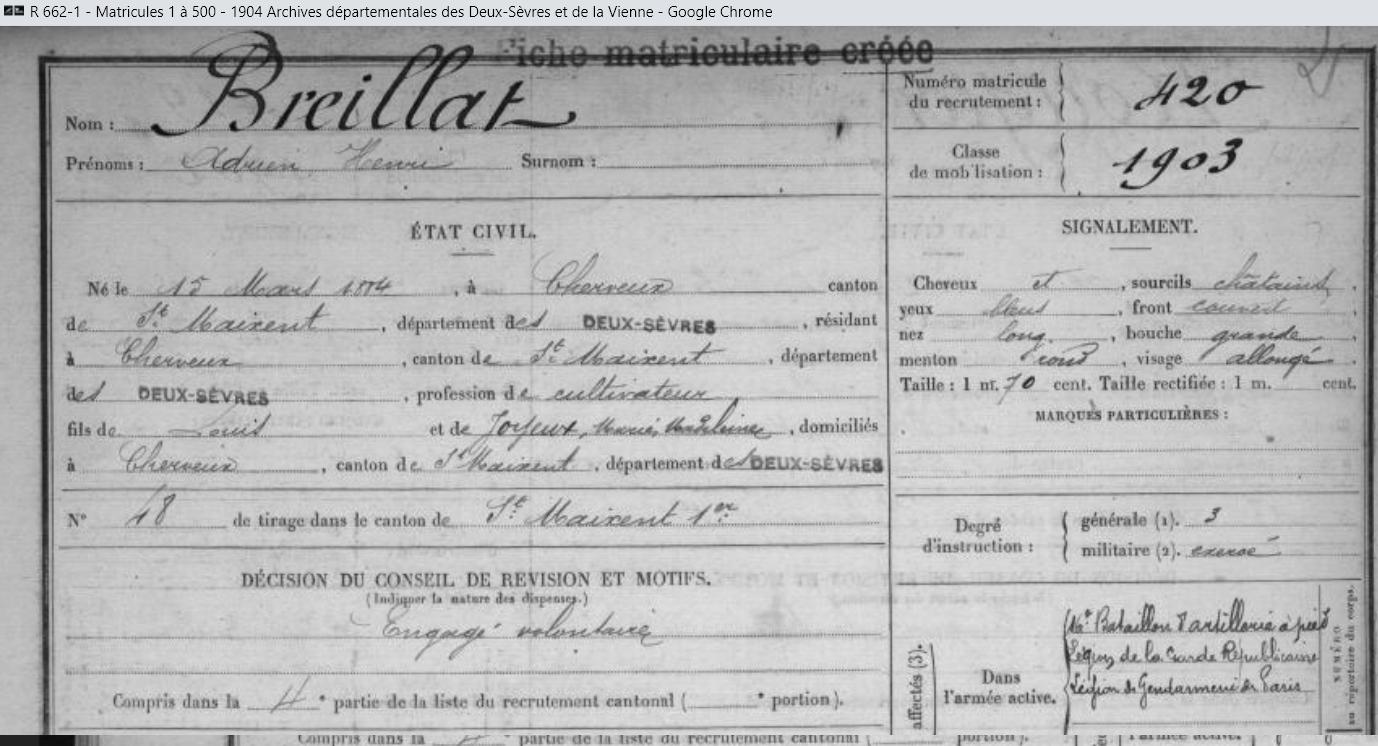 R 662-1 - Matricules 1 à 500 - 1904 Archives départementales des Deux-Sèvres et de la Vienne - Google Chrome
Fiche matriculaire créée
Nom : Breillat
Prénoms : Adrien, Henri Surnom :
Numéro matricule du recrutement : 420
Classe de mobilisation : 1903
ÉTAT CIVIL.
Né le 15 Mars 1884, à Cherveux canton
de St Maixent, département des DEUX-SÈVRES, résidant
à Cherveux, canton de St Maixent, département
des DEUX-SÈVRES, profession de cultivateur
fils de Louis et de Joyeux, Marie, Madeleine, domiciliés
à Cherveux, canton de St Maixent, département des DEUX-SÈVRES
N° 48 de tirage dans le canton de St Maixent 1er
DÉCISION DU CONSEIL DE REVISION ET MOTIFS.
(Indiquer la nature des dispenses.)
Engagé volontaire
Compris dans la 4e partie de la liste du recrutement cantonal ( e portion).
SIGNALEMENT.
Cheveux et, sourcils châtains,
yeux bleus, front couvert,
nez long, bouche grande,
menton rond, visage allongé
Taille : 1 m. 70 cent. Taille rectifiée : 1 m. cent.
MARQUES PARTICULIÈRES :
Degré d'instruction :
générale (1). 3
militaire (2). exercé
affectés (3).
Dans l'armée active.
16e Bataillon d'artillerie à pied
Légion de la Garde Républicaine
Légion de Gendarmerie de Paris
NUMÉRO
au répertoire du corps.
Compris dans la partie de la liste du recrutement cantonal ( portion).
l'armée active.